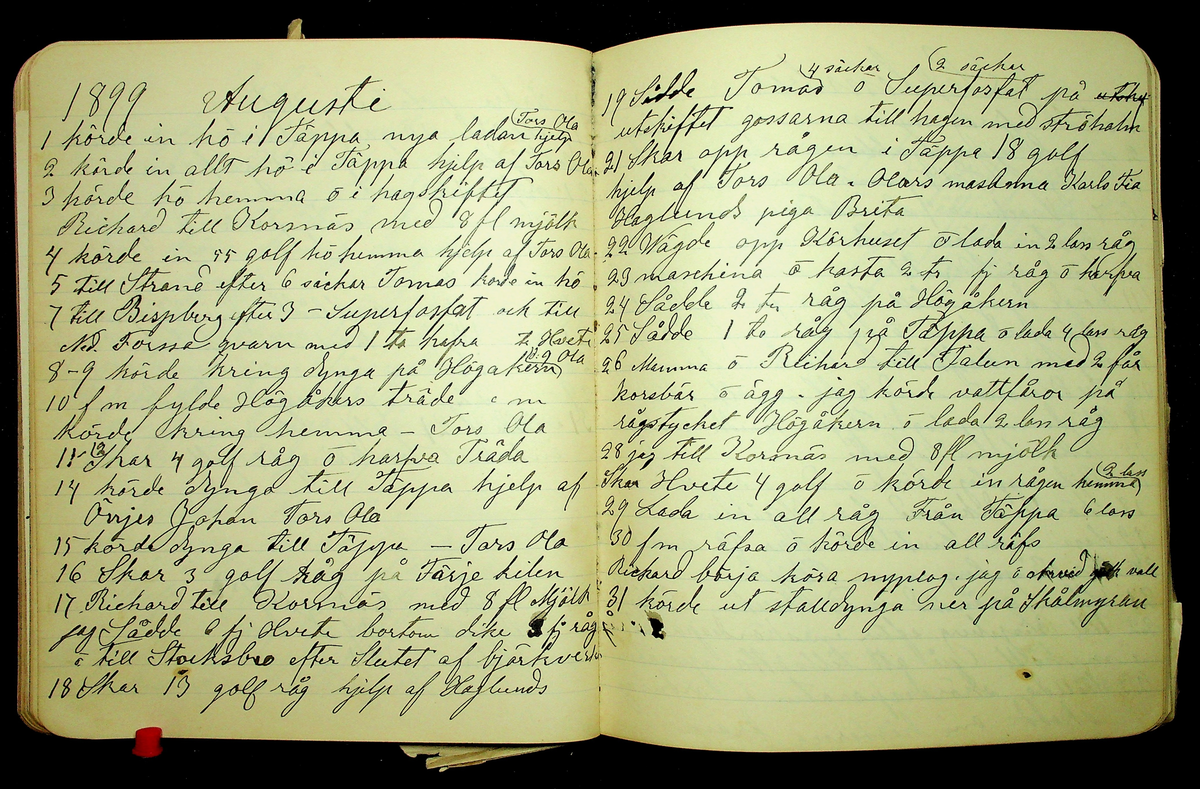 1899 Augusti
1 körde in hö i Täppa nya ladan (Tors Ola hjelp)
2 körde in allt hö i Täppa hjelp af Tors Ola
3 körde hö hemma o i hagskiftet
Richard till Korsnäs med 8 fl mjölk
4 körde in 55 golf hö hemma hjelp af Tors Ola
5 till Strand efter 6 säckar Tomas körde in hö
7 till Bispberg efter 3 - Superfosfat och till
Ned. Forssa qvarn med 1 t hafra Hvete
8-9 körde kring dynga på Högåkern Ola
10 f m fylde Högåkers träde e m
körde kring hemma - Tors Ola
Skar 4 golf råg o harfva Träda
14 körde dynga till Täppa hjelp af
Övjes Johan Tors Ola
15 körde dynga till Täppa - Tors Ola
16 Skar 3 golf råg på Färje kilen
17 Richard till Korsnäs med 8 fl Mjölk
jag Sådde 6 fj Hvete bortom dike fj råg
o till Stocksbro efter Slutet af björkveden
18 Skar 13 golf råg hjelp af Haglunds
19 Sådde Tomas (4 säckar o Superfosfat (2 säckar på
utskiftet gossarna till hagen med ströhalm
21 Skar opp rågen i Täppa 18 golf
hjelp af Tors Ola. Olars Karls Fia
Haglunds piga Brita
22 Vägde opp Körhuset o lada in 2 lass råg
23 maschina o kasta 2 tr fj råg o harfva
24 Sådde 2 tr råg på Högåkern
25 Sådde 1 råg på Täppa o lada 4 lass råg
26 Mamma o Richard till Falun med 2 får
korsbär o ägg. jag körde vattfåror på
rågstycket Högåkern o lada 2 lass råg
28 jag till Korsnäs med 8 fl mjölk
Skar Hvete 4 golf o körde in rågen hemma (2 lass)
29 Lada in all råg Från Täppa 6 lass
30 f m räfsa o körde in all räfs
Richard börja köra nyplog. jag o Arvid vall
31 körde ut stalldynga ner på Skålmyran